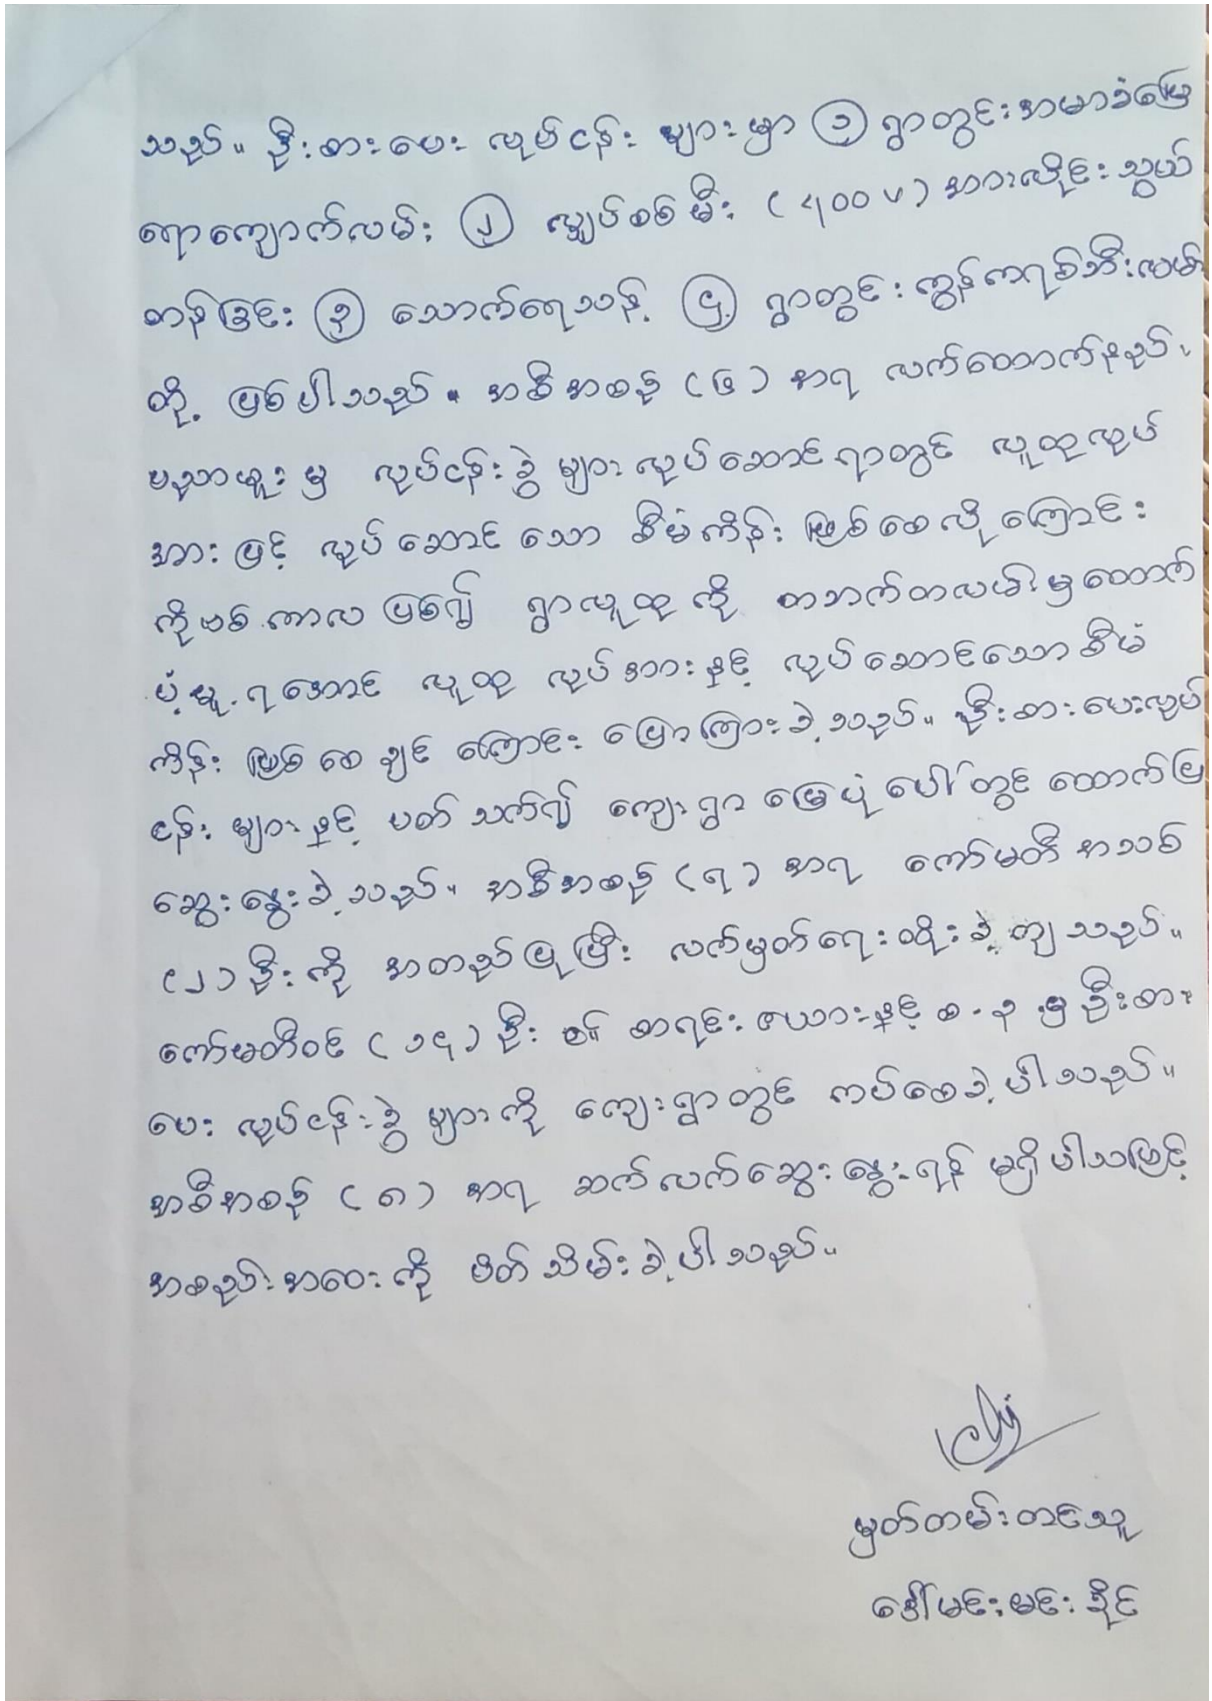 သည်။ ဦးစားပေး လုပ်ငန်း များမှာ ၁ ရွာတွင်းအမာခံမြေ
ရောကျောက်လမ်း ၂ လျှပ်စစ်မီး (၄၀၀ v) အားလိုင်းသွယ်
တန်ခြင်း ၃ သောက်ရေသန့် ၄ ရွာတွင်းကွန်ကရစ်အိးလမ်း
တို့ ဖြစ်ပါသည်။ အစီအစဉ် (၆) အရ လက်ထောက်နည်း
ပညာမှူးမှ လုပ်ငန်းခွဲ များ လုပ်ဆောင်ရာတွင် လူထုလုပ်
အားဖြင့် လုပ်ဆောင်သော စီမံကိန်း ဖြစ်စေလိုကြောင်း
ကိုဗစ်ကာလ ဖြစ်၍ ရွာလူထုကို တဘက်တလမ်းမှထောက်
ပံ့မှု ရအောင် လူထု လုပ်အားနှင့် လုပ်ဆောင်သောစီမံ
ကိန်း ဖြစ်စေချင်ကြောင်း ပြောကြားခဲ့သည်။ ဦးစားပေးလုပ်
ငန်းများနှင့် ပတ်သက်၍ ကျေးရွာမြေပုံပေါ်တွင် ထောက်ပြ
ဆွေးနွေးခဲ့သည်။ အစီအစဉ် (၇) အရ ကော်မတီအသစ်
(၂) ဦးကို အတည်ပြုပြီး လက်မှတ်ရေးထိုးခဲ့ကျသည်။
ကော်မတီဝင် (၁၄) ဦး ၏ စာရင်းဇယားနှင့် စ-ဉ မှ ဦးစား
ပေး လုပ်ငန်းခွဲများကို ကျေးရွာတွင် ကပ်စေခဲ့ပါသည်။
အစီအစဉ် (၈) အရ ဆက်လက်ဆွေးနွေးရန် မရှိပါသဖြင့်
အစည်းအဝေးကို ပိတ်သိမ်းခဲ့ပါသည်။
မှတ်တမ်းတင်သူ
ဒေါ်မင်းမင်းခိုင်